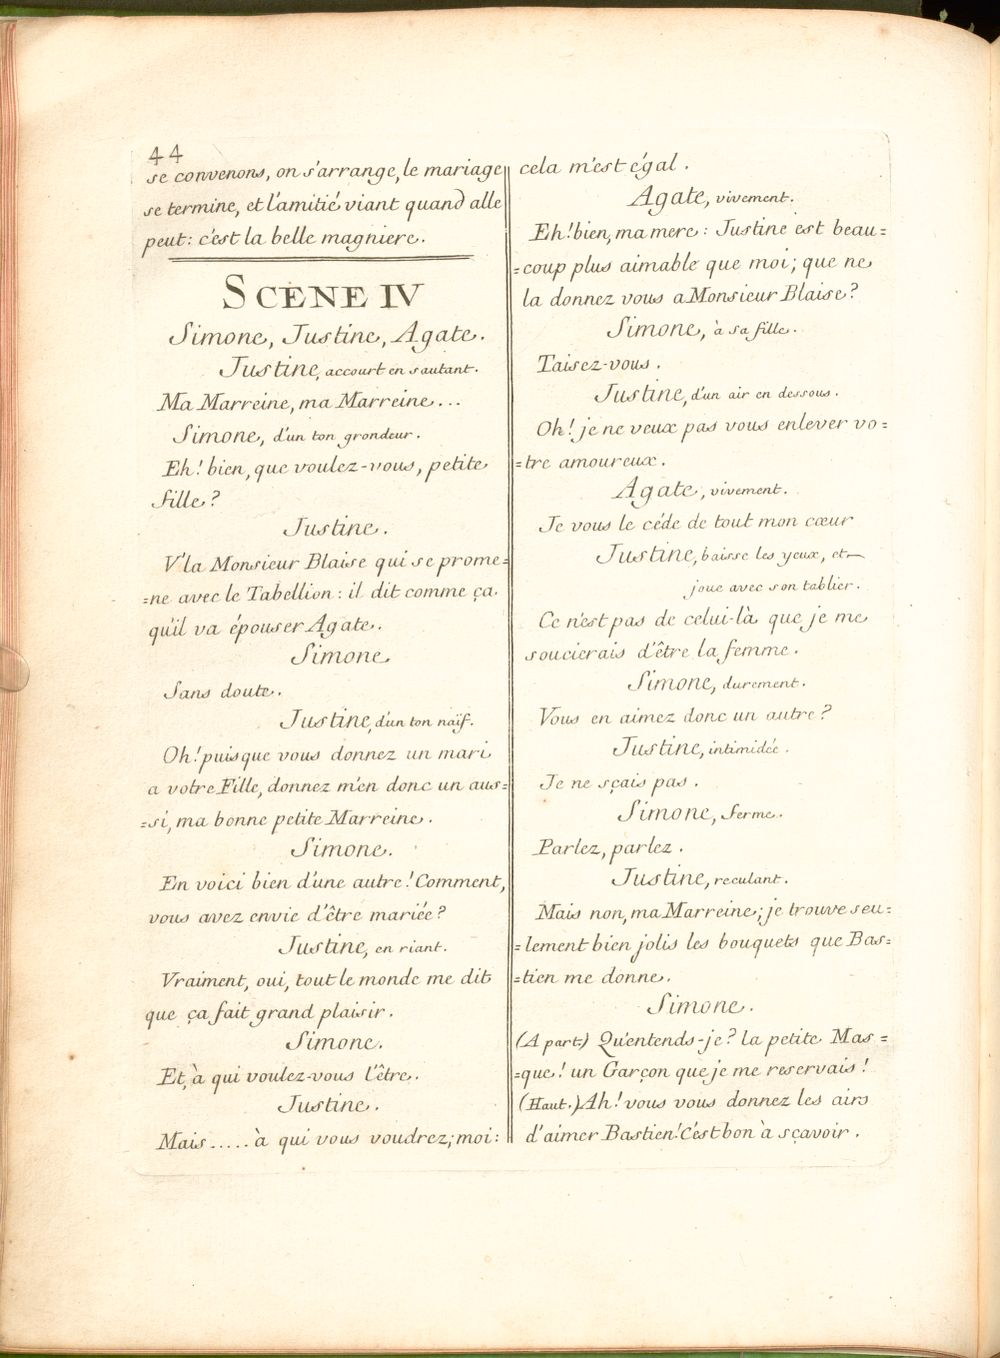 44
se convenons, on s'arrange, le mariage
se termine, et l'amitié viant quand alle
peut : c'est la belle magniere.
SCENE IV
Simone, Justine, Agate.
Justine, accourt en sautant.
Ma Marreine, ma Marreine...
Simone, d'un ton grondeur.
Eh ! bien, que voulez-vous, petite
fille ?
Justine.
V'la Monsieur Blaise qui se prome=
=ne avec le Tabellion : il dit comme ça
qu'il va épouser Agate.
Simone
Sans doute.
Justine, d'un ton naïf.
Oh ! puisque vous donnez un mari
a votre Fille, donnez m'en donc un aus=
=si, ma bonne petite Marreine.
Simone.
En voici bien d'une autre ! Comment,
vous avez envie d'être mariée ?
Justine, en riant.
Vraiment, oui, tout le monde me dit
que ça fait grand plaisir.
Simone.
Et, à qui voulez-vous l'être.
Justine.
Mais ..... à qui vous voudrez; moi :
cela m'est égal.
Agate, vivement.
Eh ! bien, ma mere : Justine est beau=
=coup plus aimable que moi ; que ne
la donnez vous a Monsieur Blaise ?
Simone, à sa fille.
Taisez-vous.
Justine, d'un air en dessous.
Oh ! je ne veux pas vous enlever vo=
=tre amoureux.
Agate, vivement.
Je vous le céde de tout mon cœur
Justine, baisse les yeux, et
joue avec son tablier.
Ce n'est pas de celui-là que je me
soucierais d'être la femme.
Simone, durement.
Vous en aimez donc un autre ?
Justine, intimidée.
Je ne sçais pas.
Simone, ferme.
Parlez, parlez.
Justine, reculant.
Mais non, ma Marreine; je trouve seu=
=lement bien jolis les bouquets que Bas=
=tien me donne.
Simone.
(A part.) Qu'entends-je ? la petite Mas=
=que ! un Garçon que je me reservais !
(Haut.) Ah ! vous vous donnez les airs
d'aimer Bastien ! C'est bon à sçavoir.